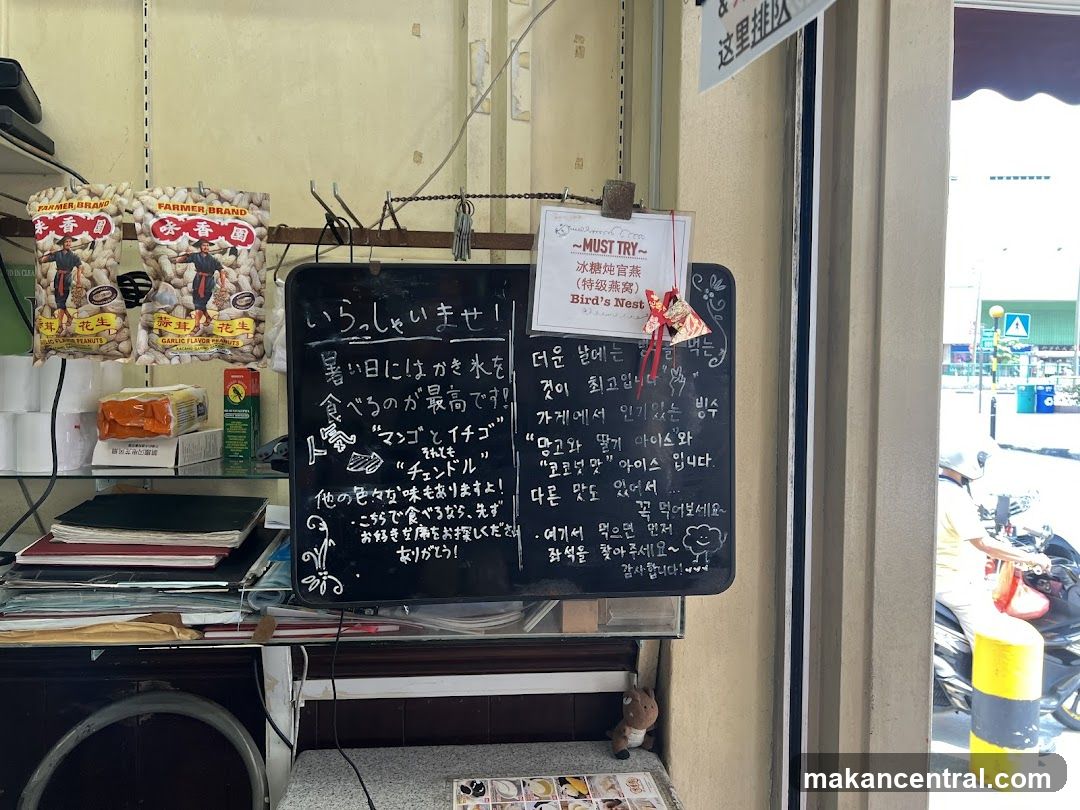 &
这里排队
FARMER BRAND
味香園
蒜茸花生
GARLIC FLAVOR PEANUTS
FARMER BRAND
味香園
蒜茸花生
GARLIC FLAVOR PEANUTS
~MUST TRY~
冰糖炖官燕
(特级燕窝)
Bird's Nest
いらっしゃいませ!
暑い日にはかき氷を
食べるのが最高です!
人気
"マンゴとイチゴ"
それとも
"チェンドル"
他の色々な味もありますよ!
・こちらで食べるなら、先ず
お好きな席をお探しください
ありがとう!
더운 날에는 먹는
것이 최고입니다"
가게에서 인기있는 빙수
"망고와 딸기 아이스"와
"코코넛맛" 아이스 입니다.
다른 맛도 있어서...
꼭 먹어보세요~
·여기서 먹으면 먼저
좌석을 찾아주세요~
감사합니다!
makancentral.com